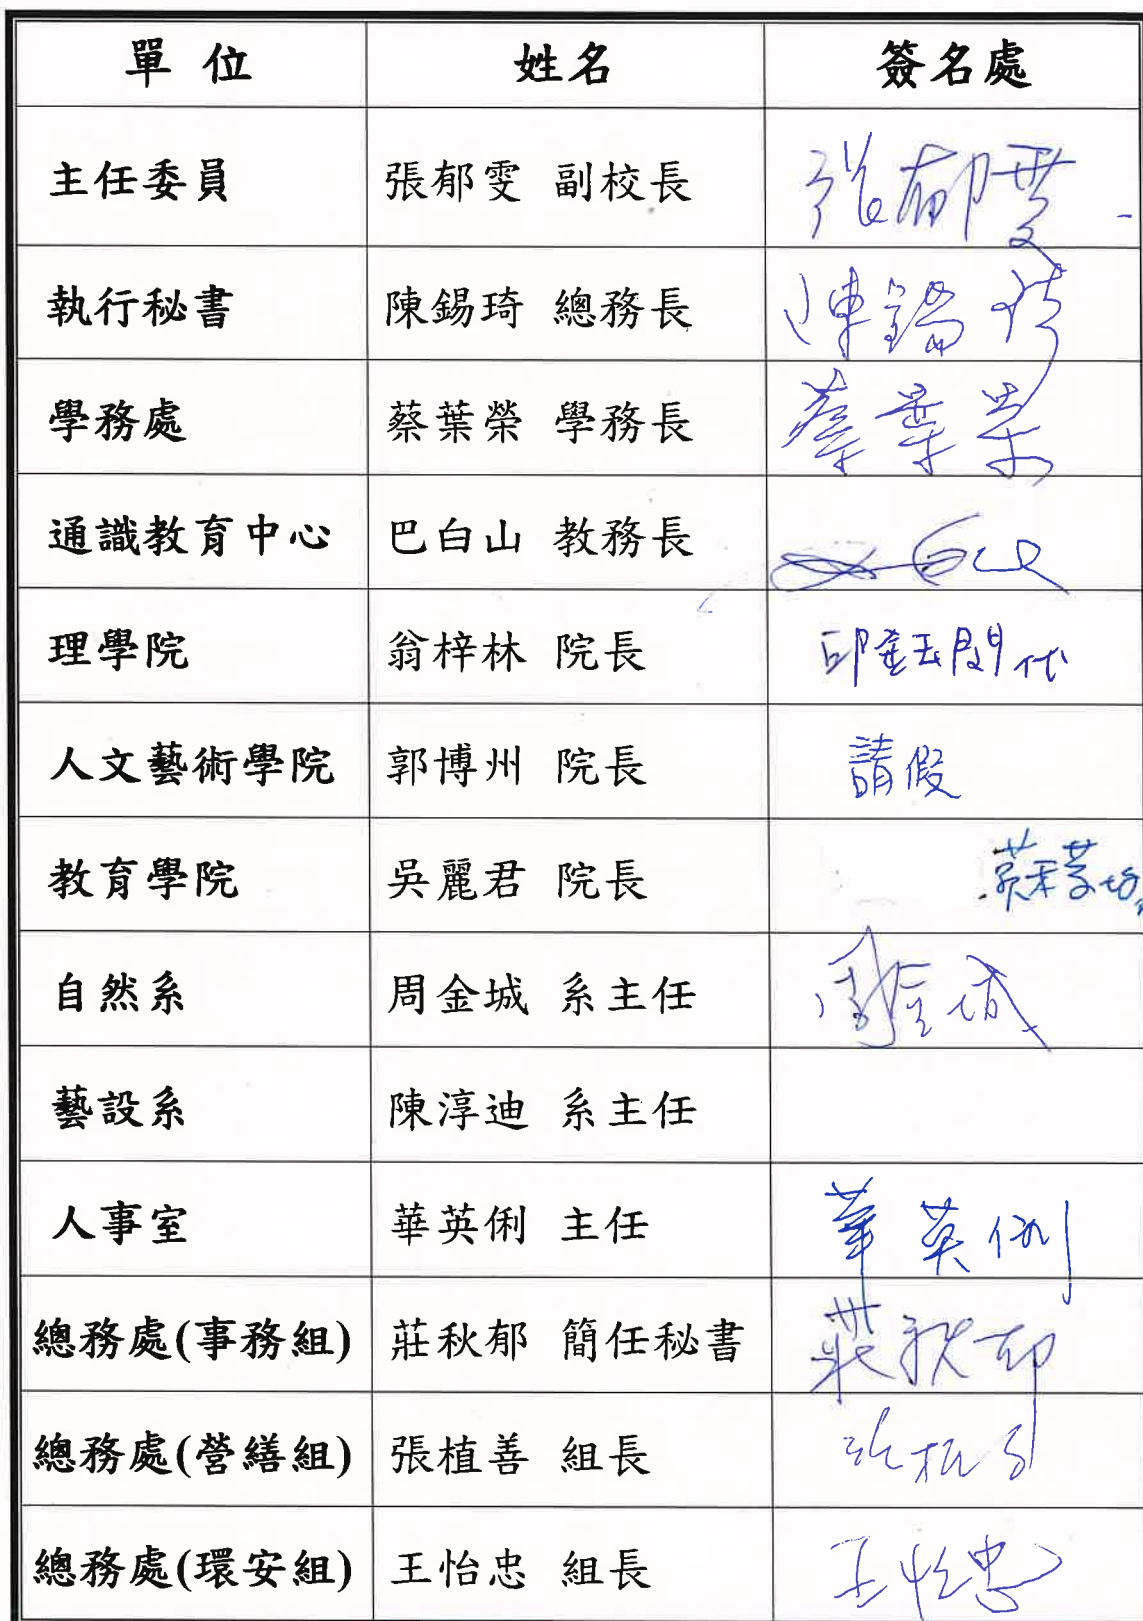 單 位 姓名 簽名處
主任委員 張郁雯 副校長 張郁雯
執行秘書 陳錫琦 總務長 陳錫琦
學務處 蔡葉榮 學務長 蔡葉榮
通識教育中心 巴白山 教務長
理學院 翁梓林 院長 代
人文藝術學院 郭博州 院長 請假
教育學院 吳麗君 院長
自然系 周金城 系主任 周金城
藝設系 陳淳迪 系主任
人事室 華英俐 主任 華英俐
總務處(事務組) 莊秋郁 簡任秘書 莊秋郁
總務處(營繕組) 張植善 組長
總務處(環安組) 王怡忠 組長 王怡忠